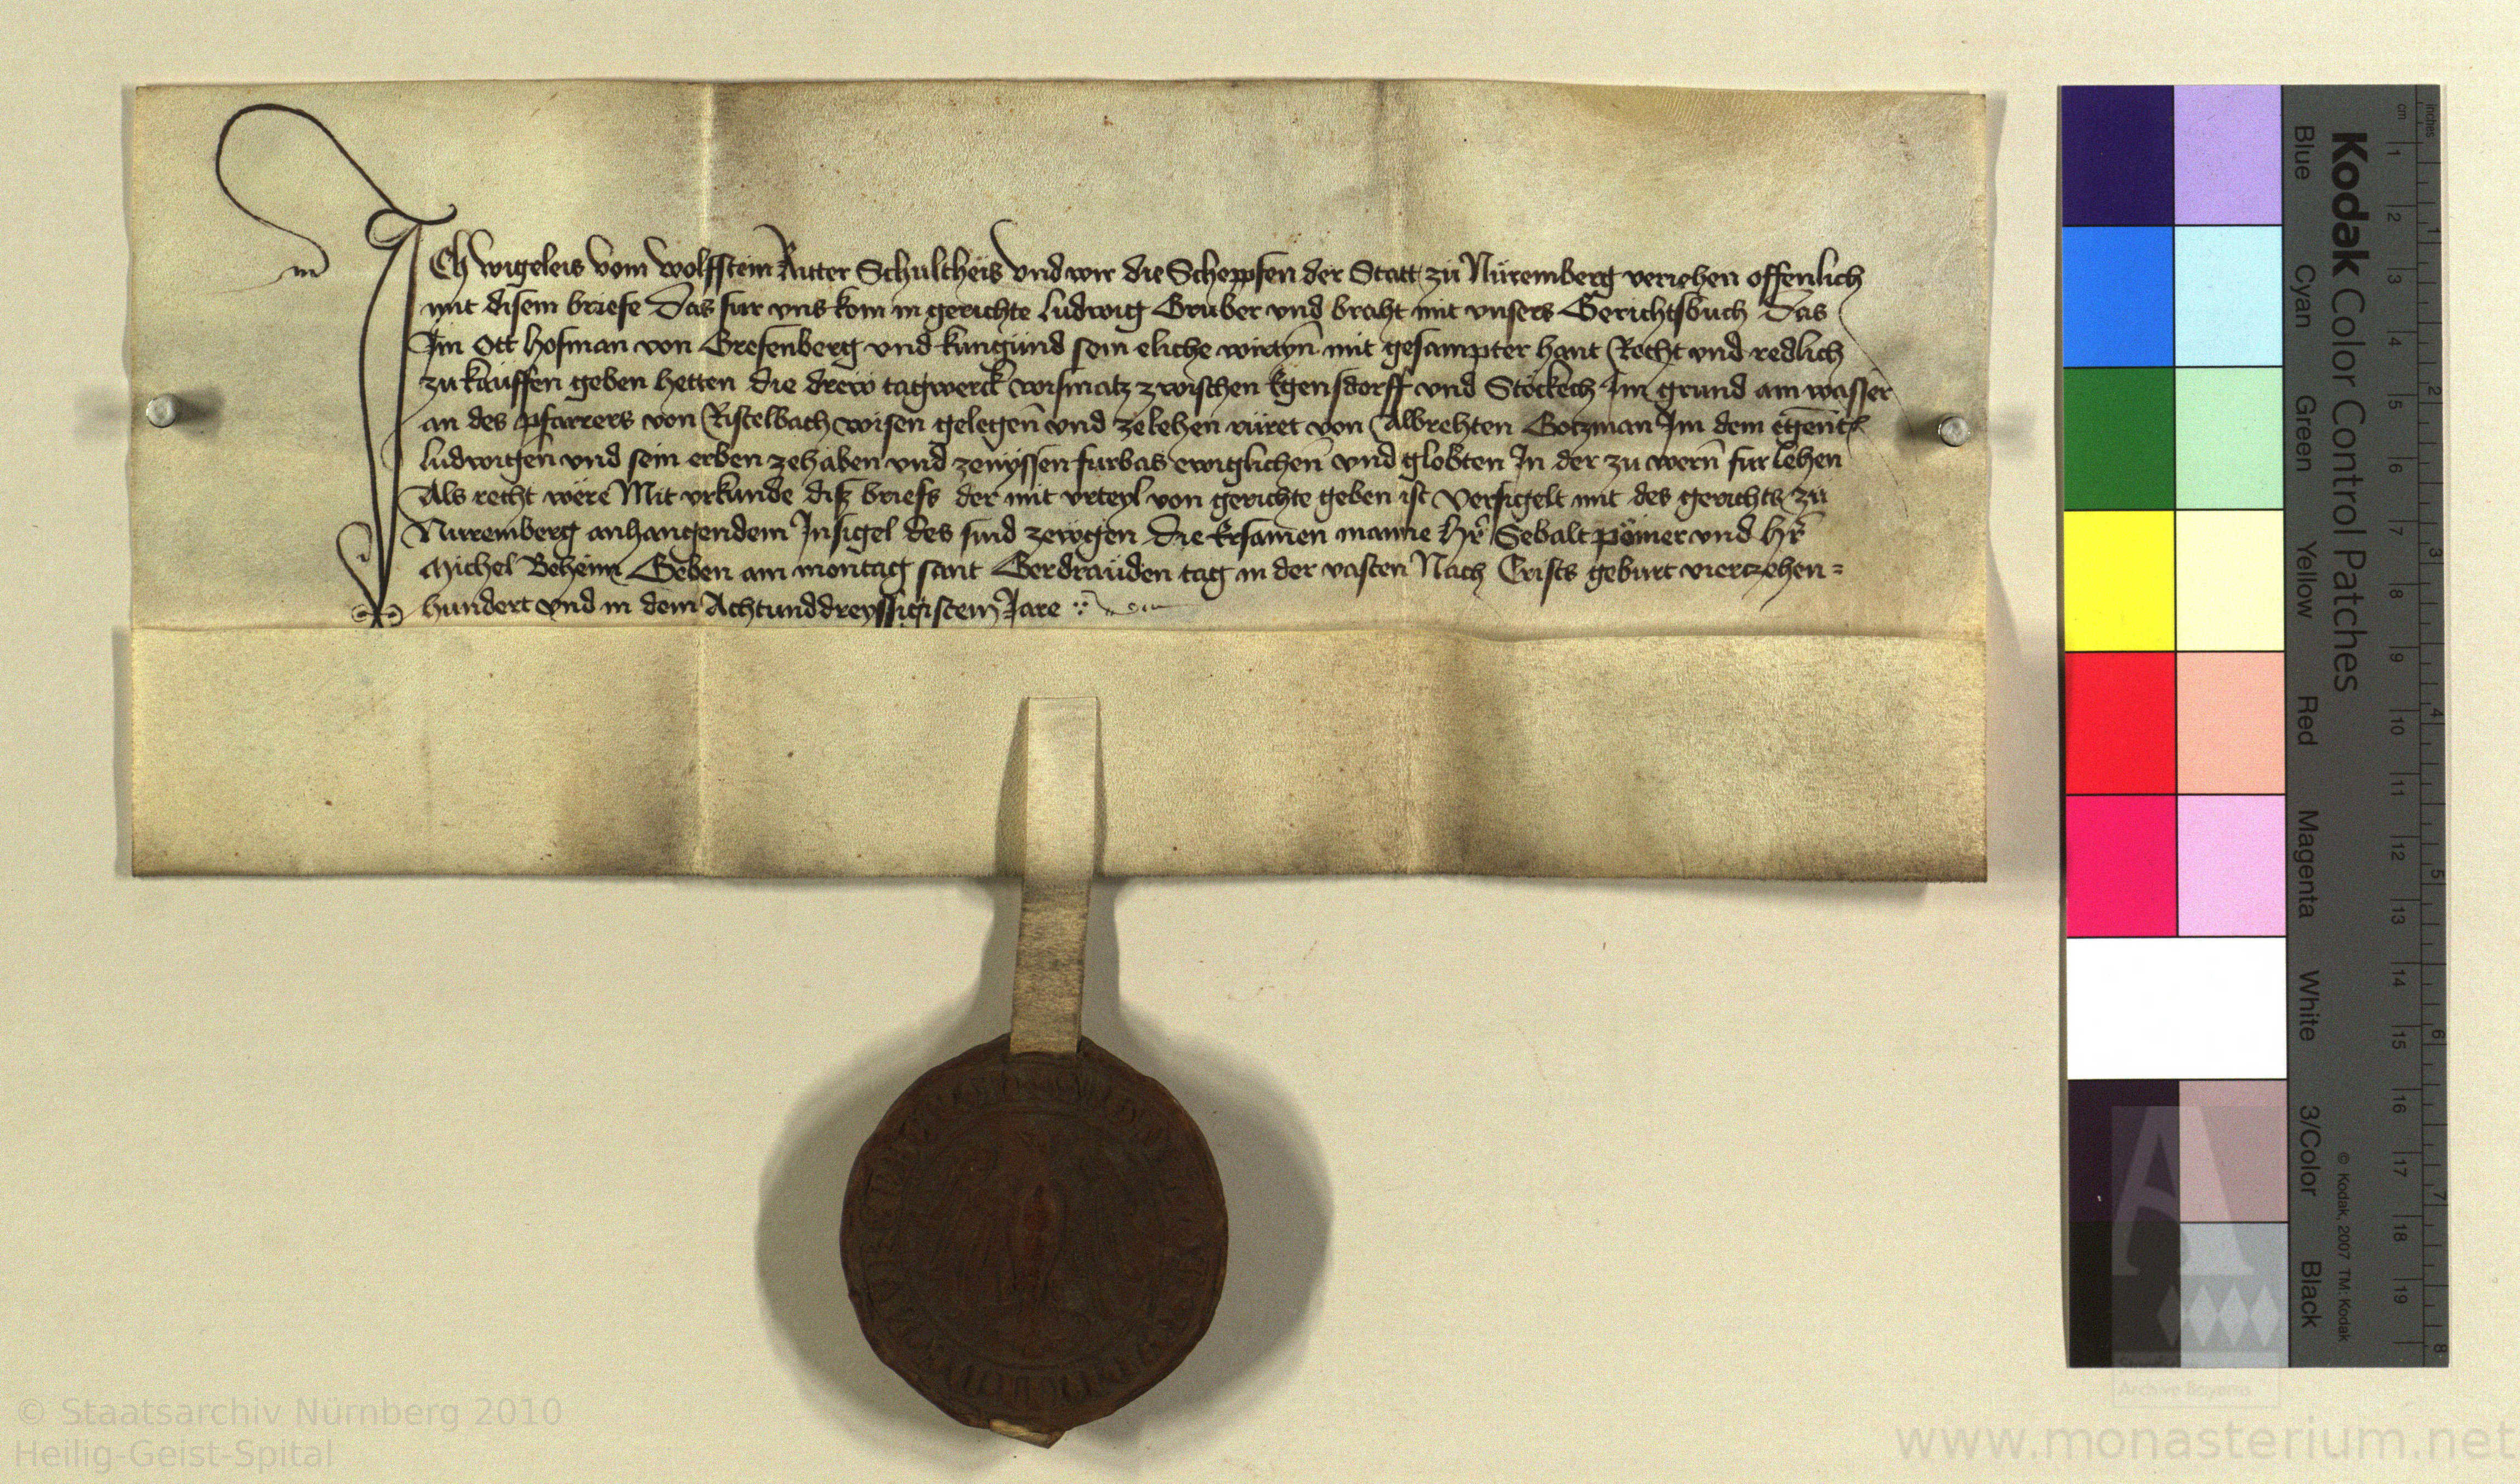 ICh wigeleis vom wolffstein Ritter Schultheis vnd wir die Scheppfen der Statt zu Nüremberg veriehen offenlich
mit disem briefe Das fur vns kom in gerichte ludwig Gruber vnd braht mit vnsers Gerichtsbuch Das
Im Ott hofman von Grefenberg vnd kungund sein eliche wirtyn mit gesampter hant Recht vnd redlich
zu kauffen geben hetten die drew tagwerck wismatz zwischen Egensdorff vnd Stöckech Im grund am wasser
an des pfarrers von Ristelbach wisen gelegen vnd zelehen rüret von Albrehten Gotzman Im dem egent
ludwigen vnd sein erben zehaben vnd zenyssen furbas ewiglichen vnd globten In der zu wern fur lehen
Als recht were Mit vrkunde disz briefs der mit vrteyl von gerichte geben ist versigelt mit des gerichts zu
Nuremberg anhangendem Insigel des sind zewgen die Ersamen manne Hr Sebalt pömer vnd Hr
Michel Beheim Geben am montag sant Gerdrauden tag in der vasten Nach Crists geburt vierczehen=
hundert vnd in dem Achtunddreyssigistem Jare
Kodak Color Control Patches
Blue Cyan Green Yellow Red Magenta White 3/Color Black
© Kodak, 2007 TM: Kodak
cm 1 2 3 4 5 6 7 8 9 10 11 12 13 14 15 16 17 18 19
inches 1 2 3 4 5 6 7 8
© Staatsarchiv Nürnberg 2010
Heilig-Geist-Spital
www.monasterium.net